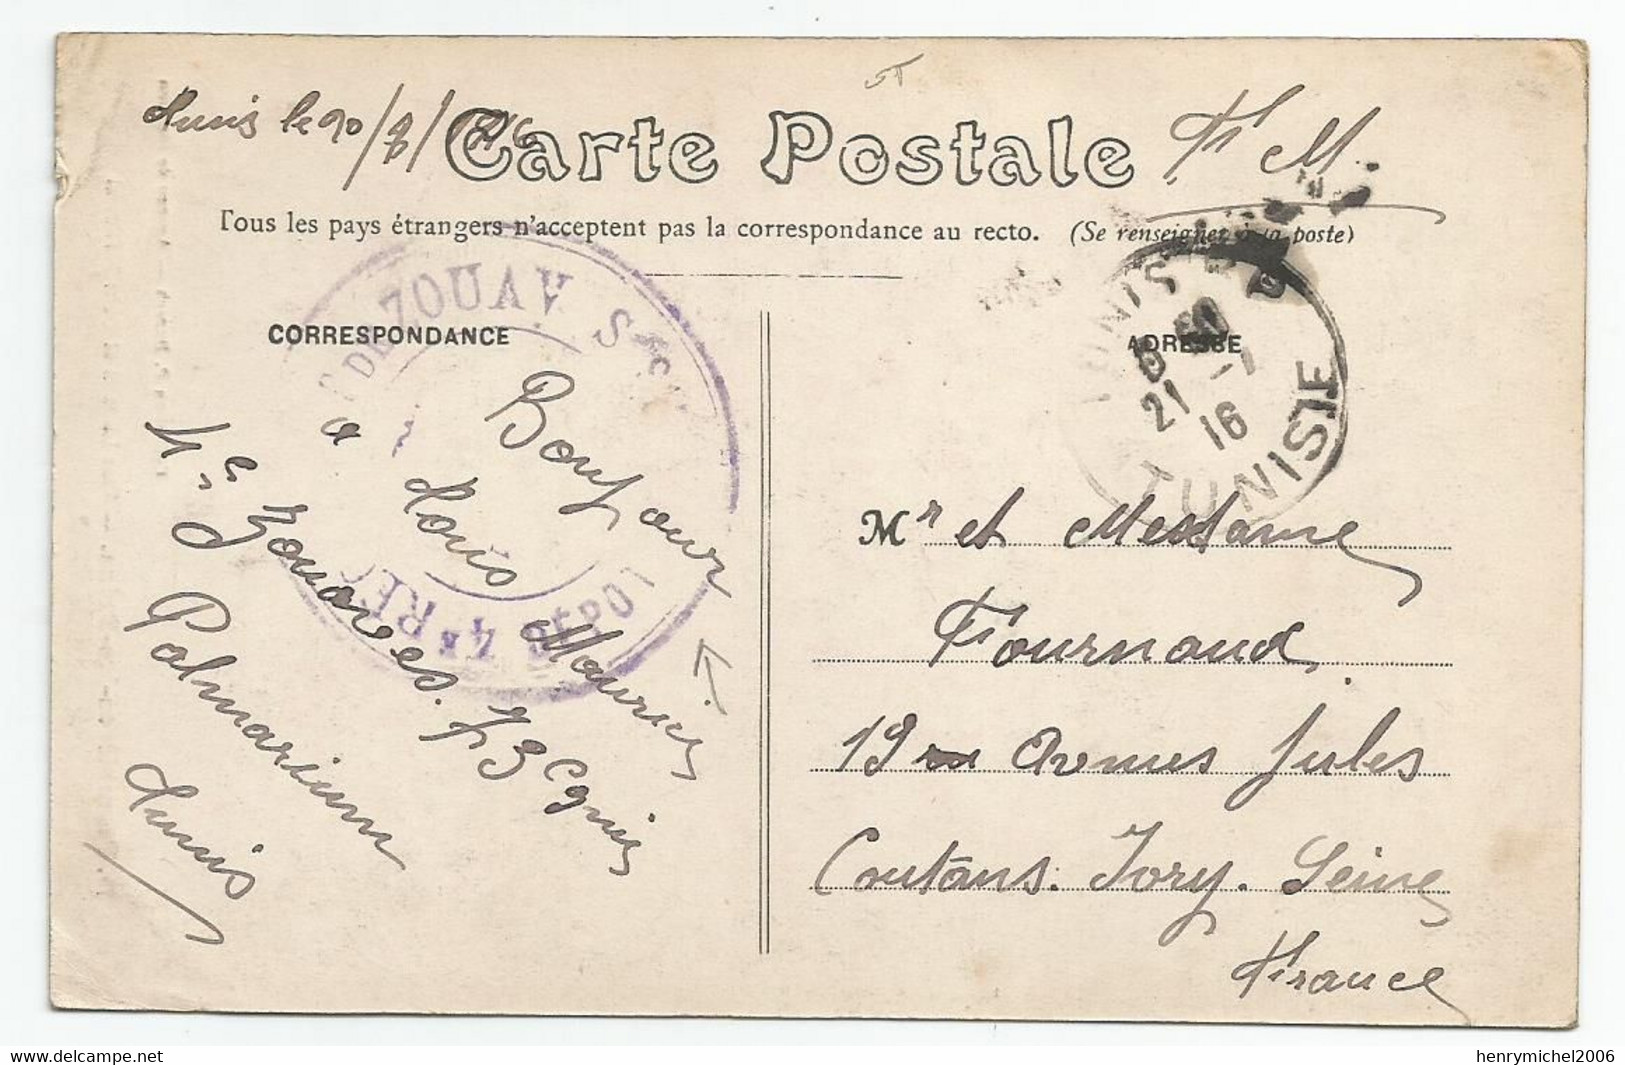 Tunis le 20/7/1916
Carte Postale
F M.
Tous les pays étrangers n'acceptent pas la correspondance au recto. (Se renseigner à la poste)
CORRESPONDANCE
ADRESSE
DE ZOUAV.
4e RÉG
DÉPOT
TUNIS
21 -7
16
TUNISIE
Bonjour
a Tous Maurice
4e Zouaves. 73 Cgnie
Palmarium
Tunis
Mr et Mestame
Fournaud
19 Avenues Jules
Coutans. Ivry. Seine
France
henrymichel2006